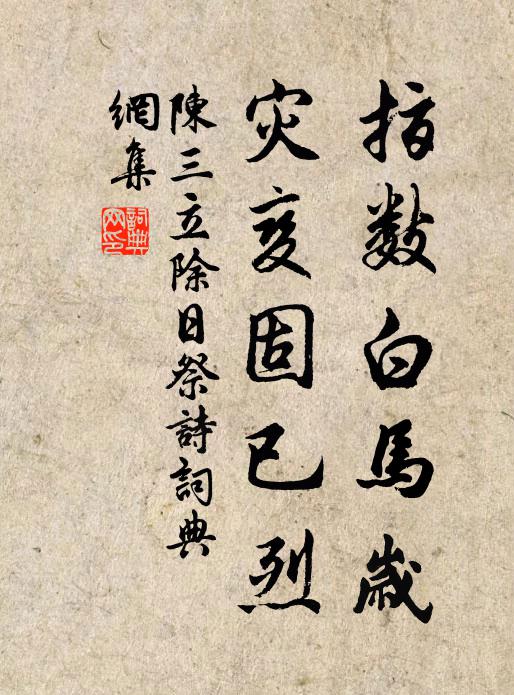 指數白馬歲
灾變固已烈
陳三立除日祭詩詞典
網集
詞典
网印